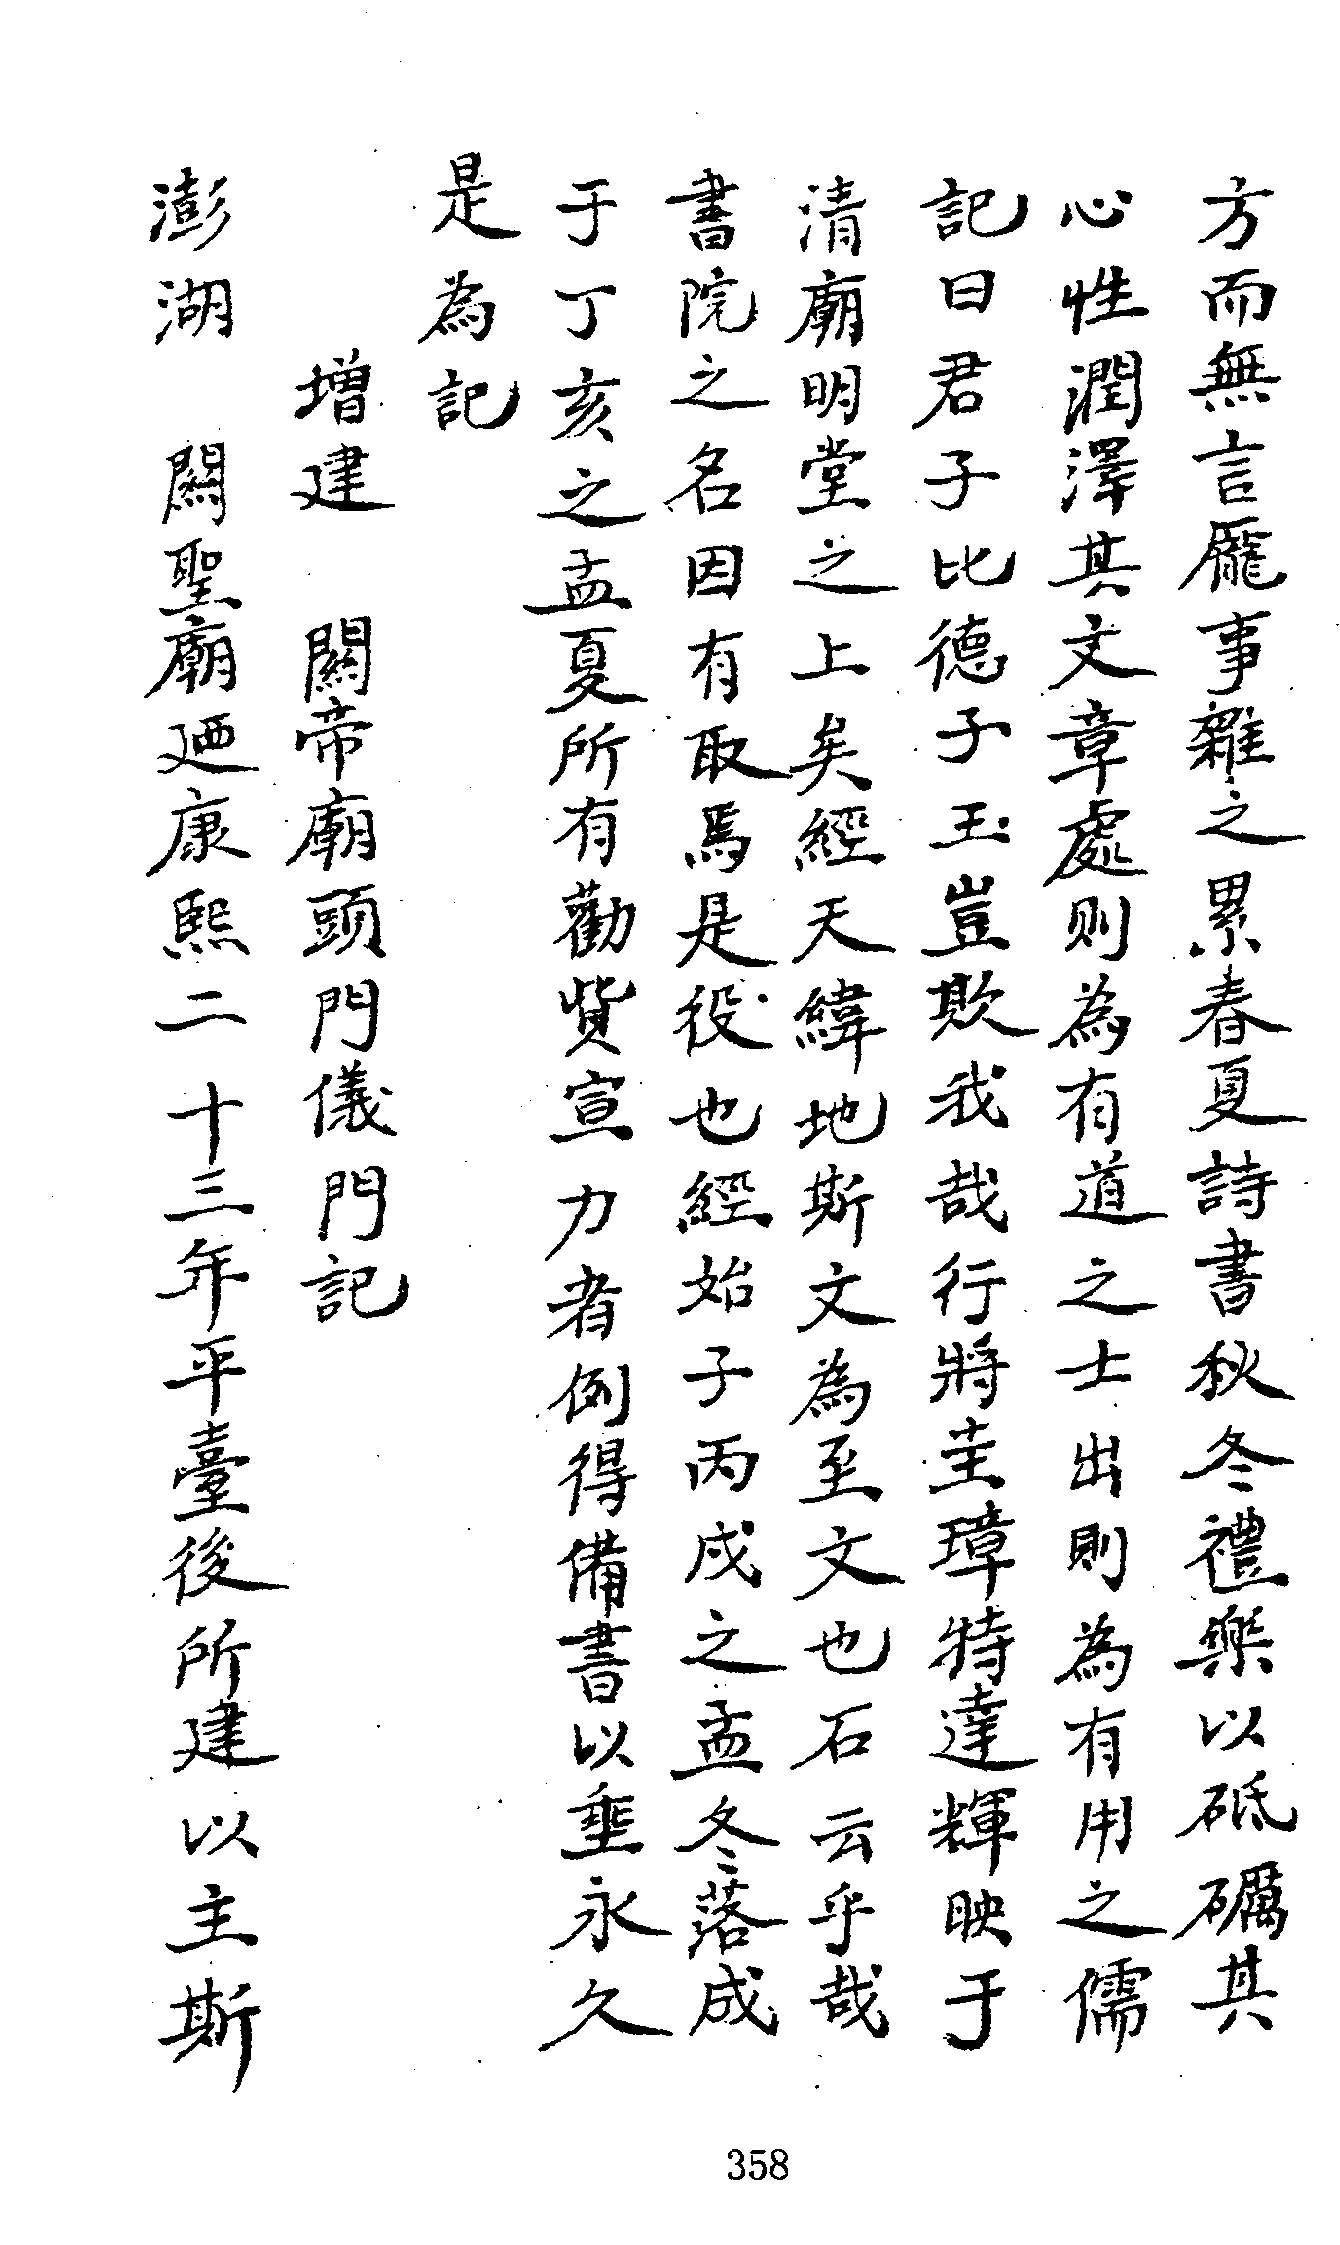 方而無言龐事雜之累春夏詩書秋冬禮樂以砥礪其
心性潤澤其文章處則為有道之士出則為有用之儒
記曰君子比德于玉豈欺我哉行將圭璋特達輝映于
清廟明堂之上矣經天緯地斯文為至文也石云乎哉
書院之名因有取焉是役也經始于丙戌之孟冬落成
于丁亥之孟夏所有勸貲宣力者例得備書以垂永久
是為記
增建　關帝廟頭門儀門記
澎湖　關聖廟廼康熙二十三年平臺後所建以主斯
358